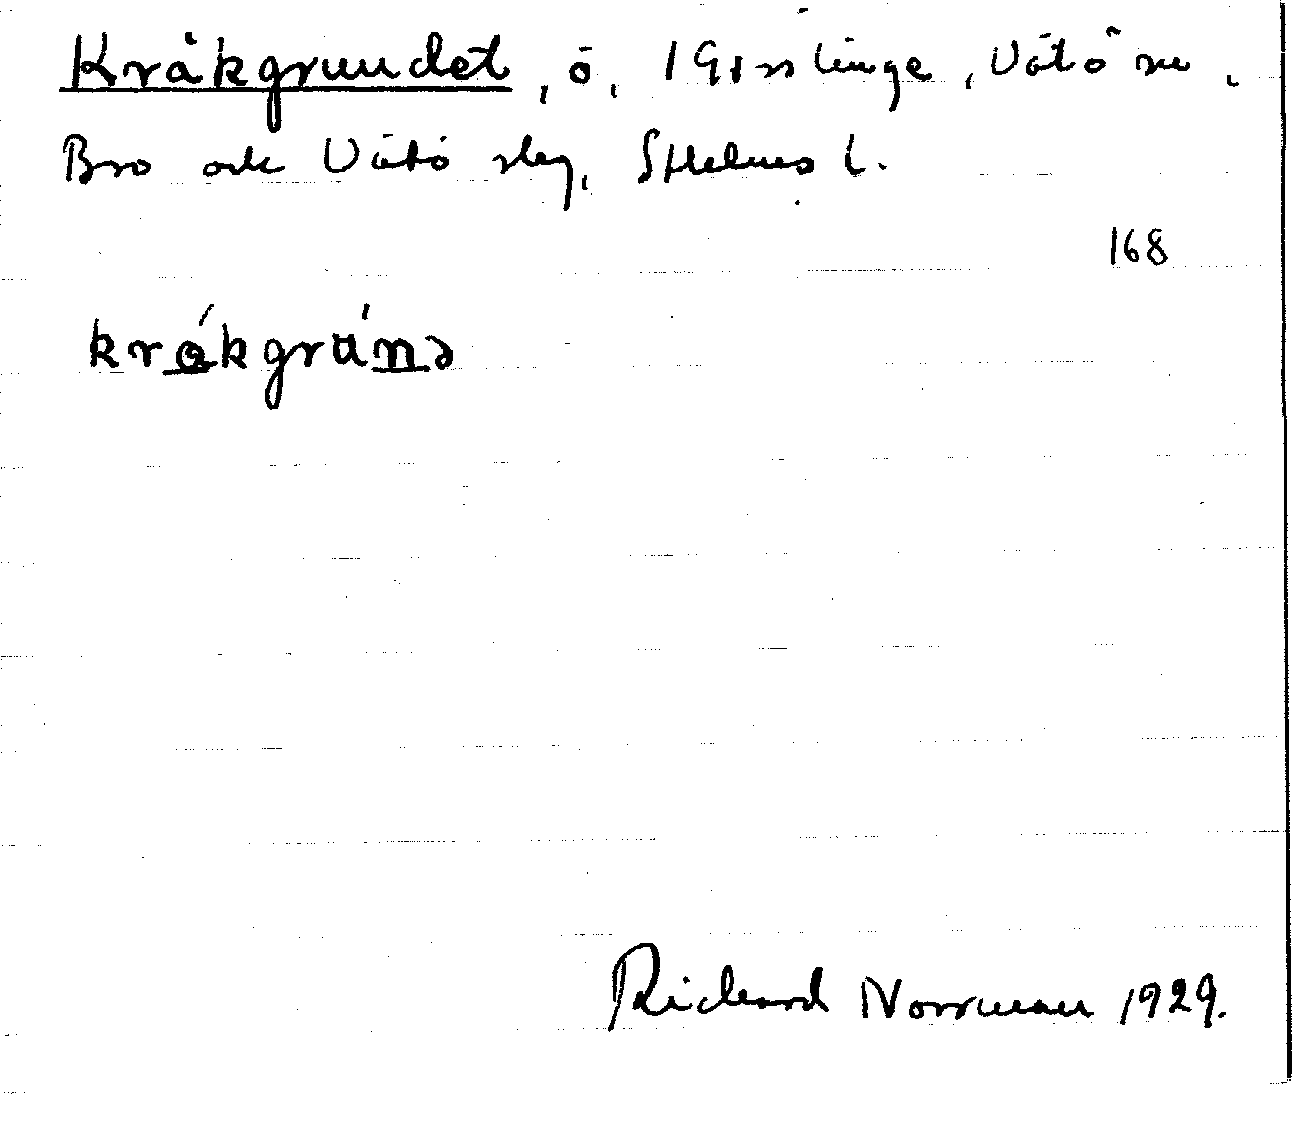 Kråkgrundet, ö, 19 Gisslinge, Vätö sn,
Bro och Vätö skg, Sthlms l.
168
krákgránə
Richard Norrman 1929.